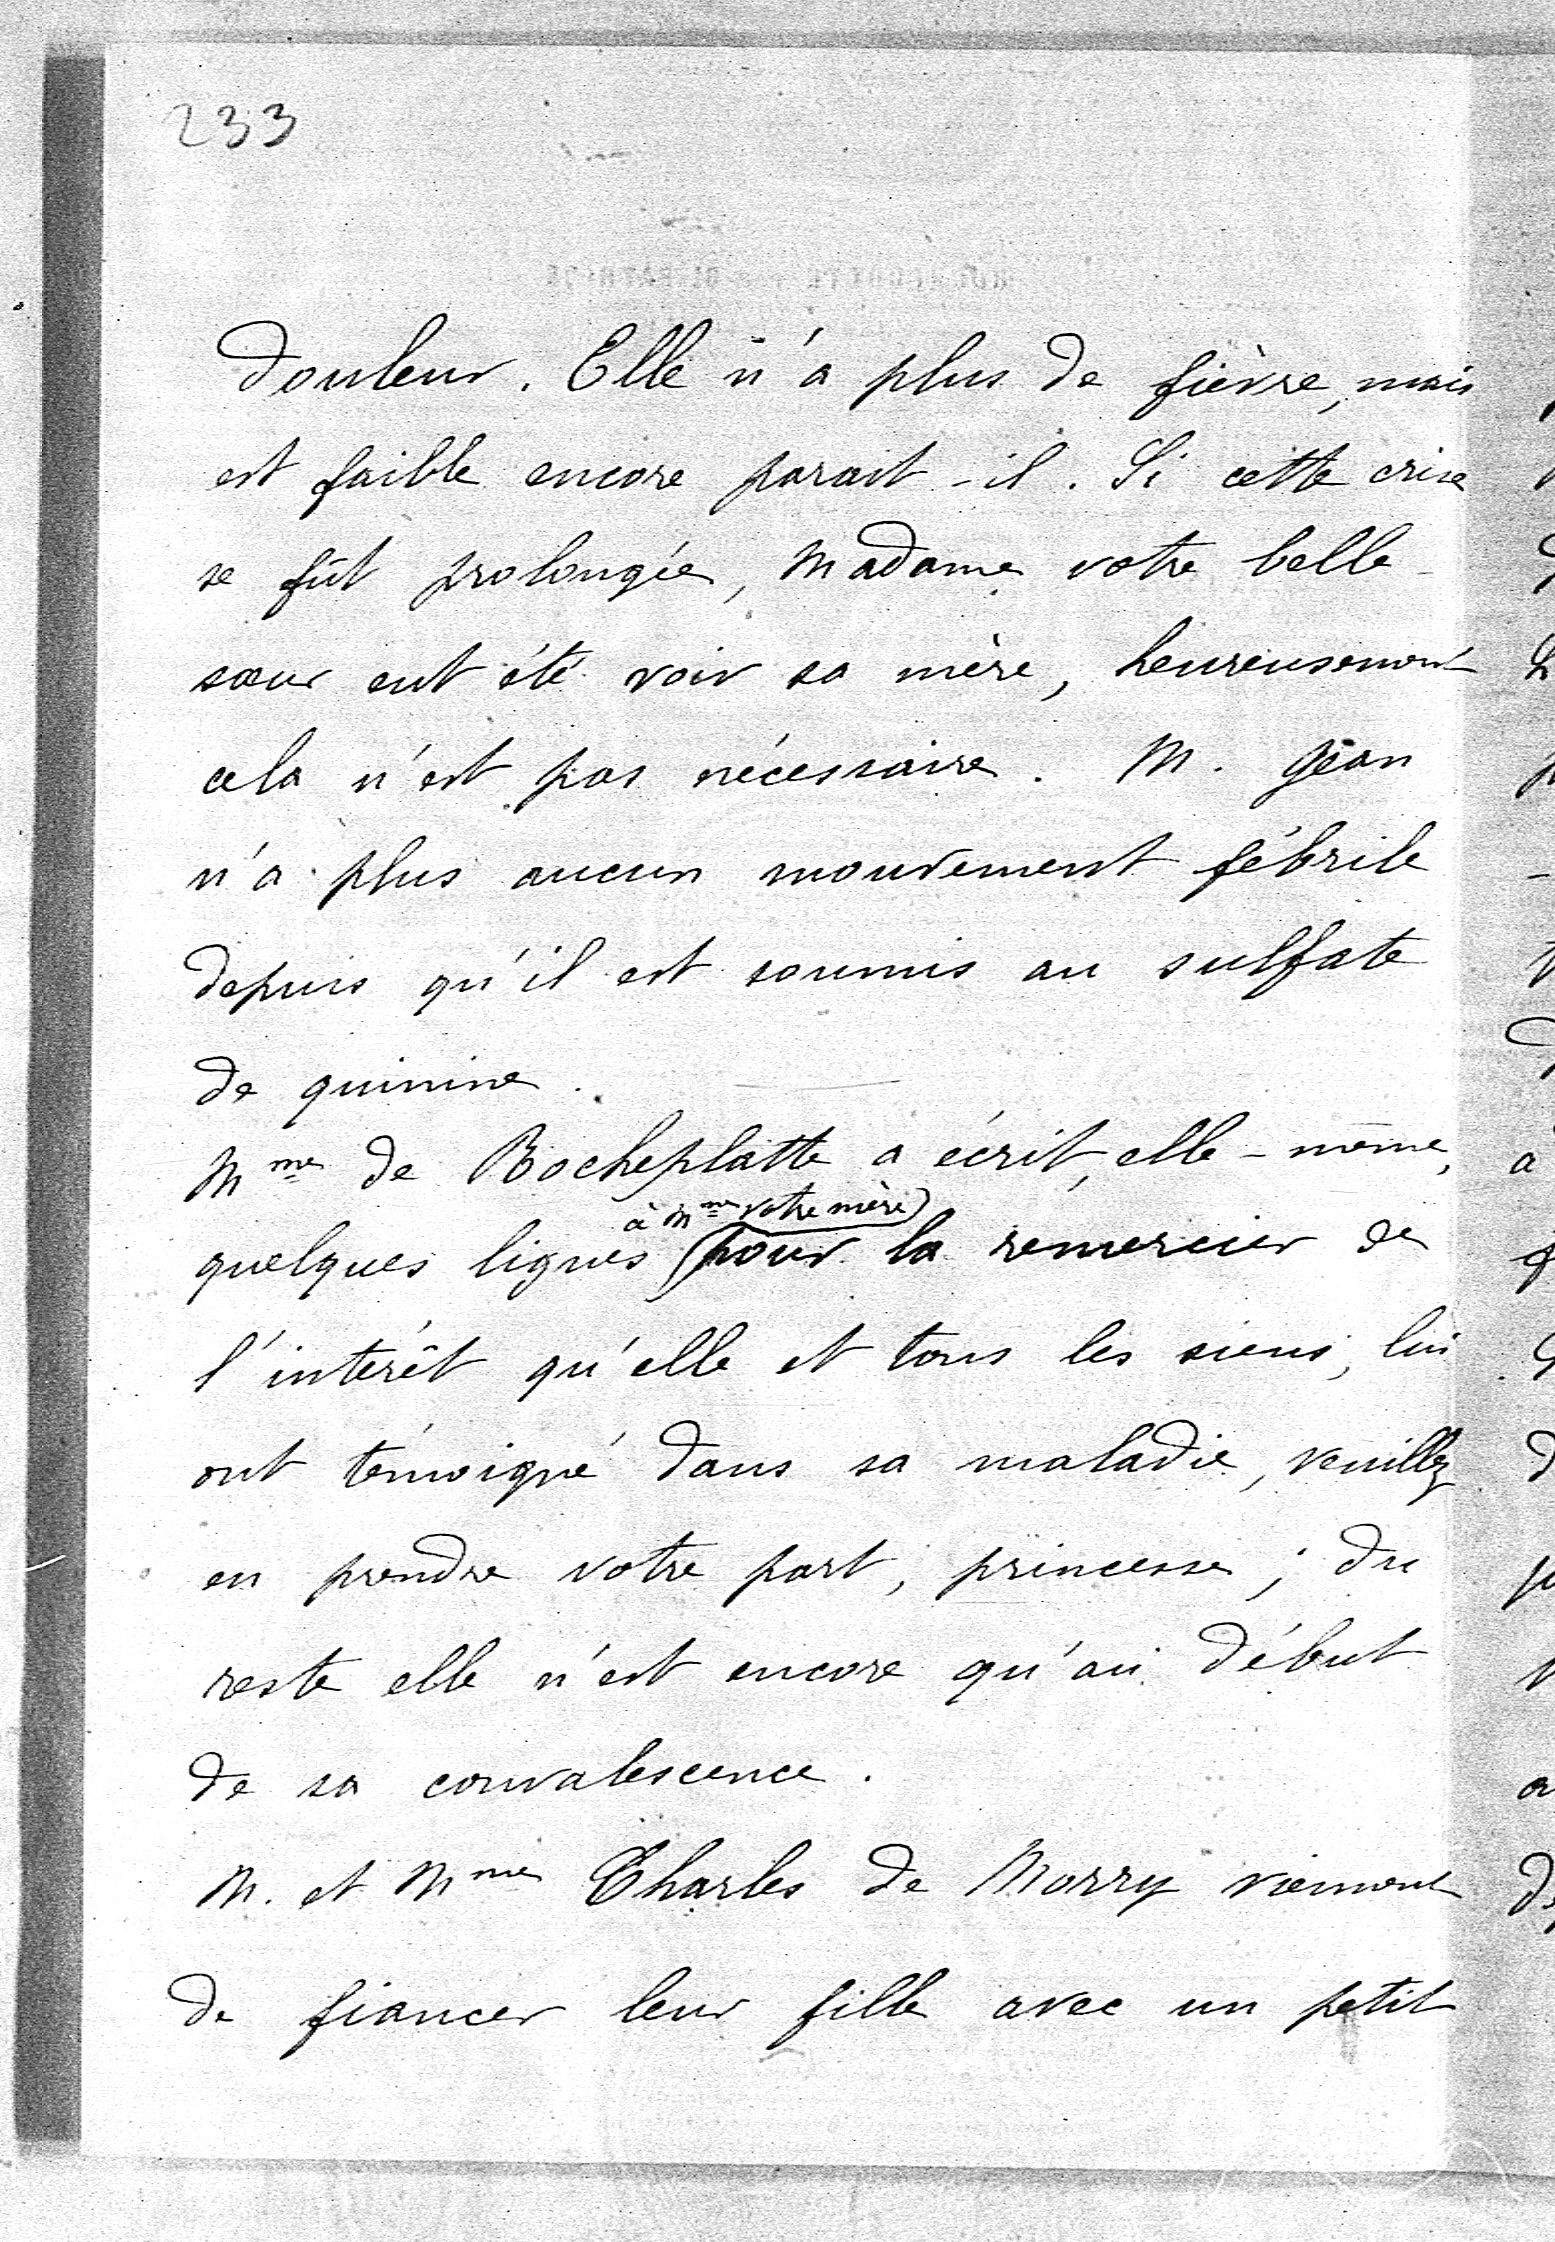 233
douleur. Elle n'a plus de fièvre, mais
est faible encore parait-il. Si cette crise
se fût prolongée, Madame votre belle-
sœur eut été voir sa mère, heureusement
cela n'est pas nécessaire. M. Jean
n'a plus aucun mouvement fébrile
depuis qu'il est soumis au sulfate
de quinine.
Mme de Rocheplatte a écrit, elle-même,
à Mme votre mère
quelques lignes pour la remercier de
l'intérêt qu'elle et tous les siens, lui
ont témoigné dans sa maladie, veuillez
en prendre votre part, princesse; du
reste elle n'est encore qu'au début
de sa convalescence.
M. et Mme Charles de Morry viennent
de fiancer leur fille avec un petit